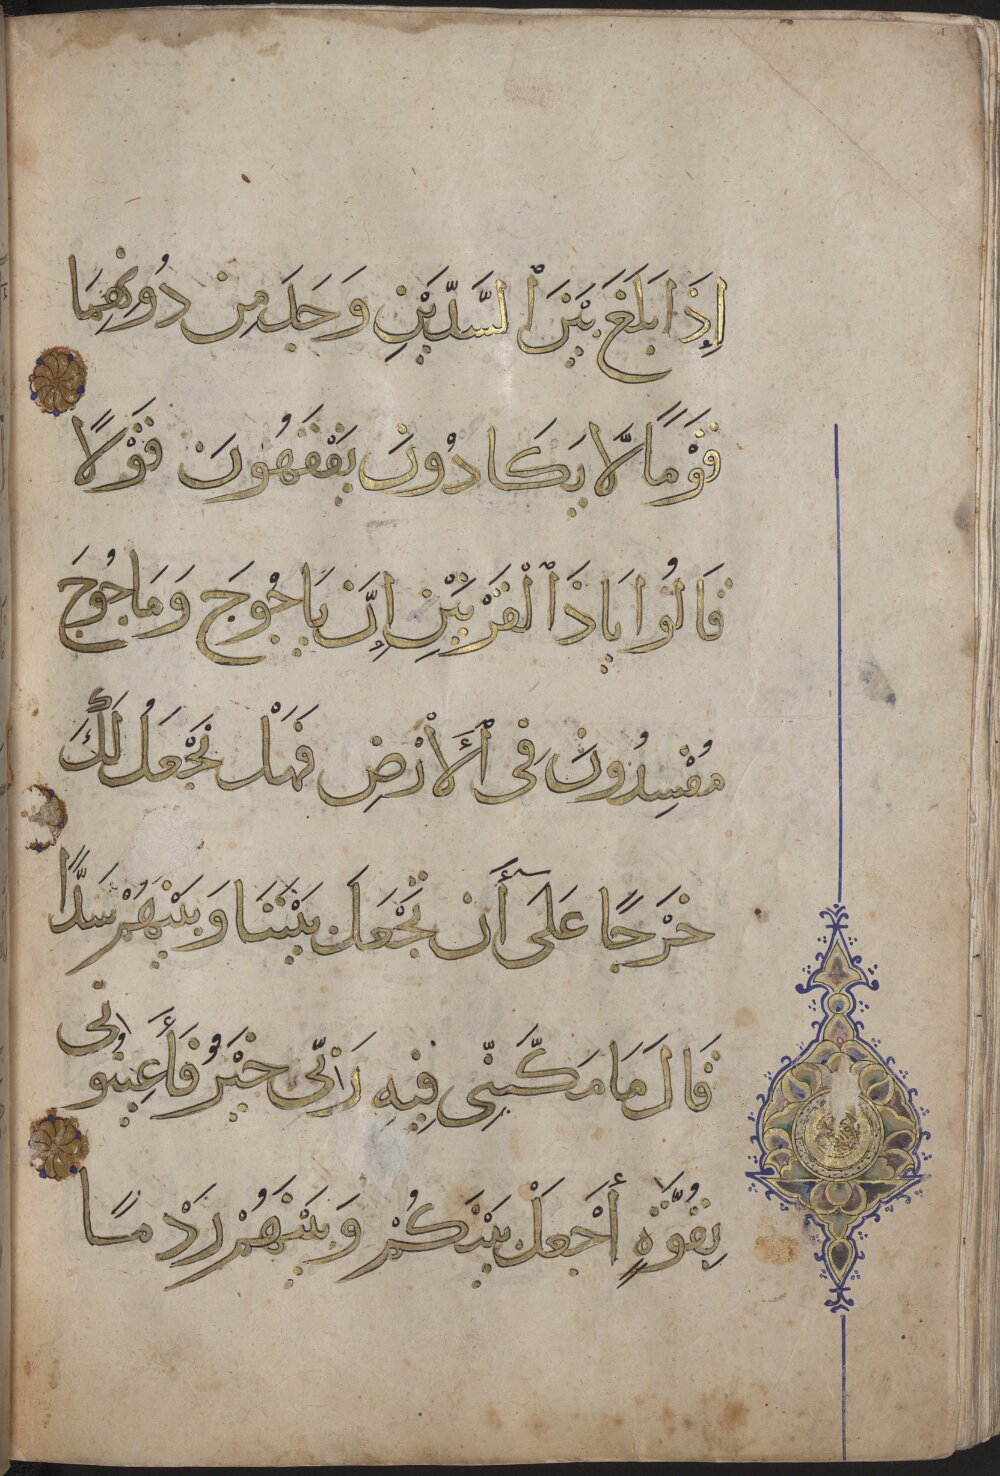 إِذَا بَلَغَ بَيْنَ ٱلسَّدَّيْنِ وَجَدَ مِن دُونِهِمَا
قَوْمًا لَّا يَكَادُونَ يَفْقَهُونَ قَوْلًا
قَالُوا يَاذَا ٱلْقَرْنَيْنِ إِنَّ يَاجُوجَ وَمَاجُوجَ
مُفْسِدُونَ فِى ٱلْأَرْضِ فَهَلْ نَجْعَلُ لَكَ
خَرْجًا عَلَىٓ أَن تَجْعَلَ بَيْنَنَا وَبَيْنَهُمْ سَدًّا
قَالَ مَا مَكَّنِّى فِيهِ رَبِّى خَيْرٌ فَأَعِينُونِى
بِقُوَّةٍ أَجْعَلْ بَيْنَكُمْ وَبَيْنَهُمْ رَدْمًا